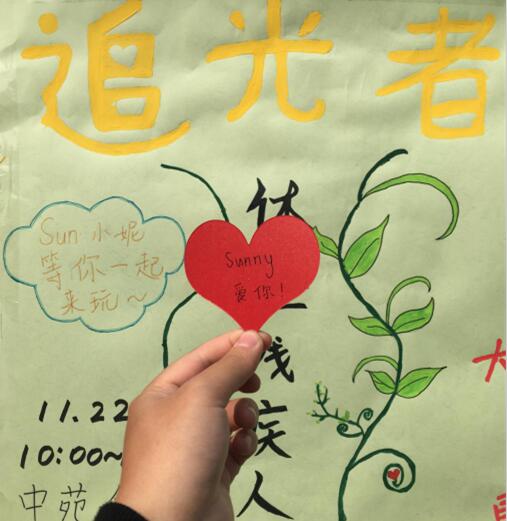 追光者
Sun 小妮
等你一起
来玩~
Sunny
爱你!
体
残
疾
人
11.22
10:00~
中苑
大